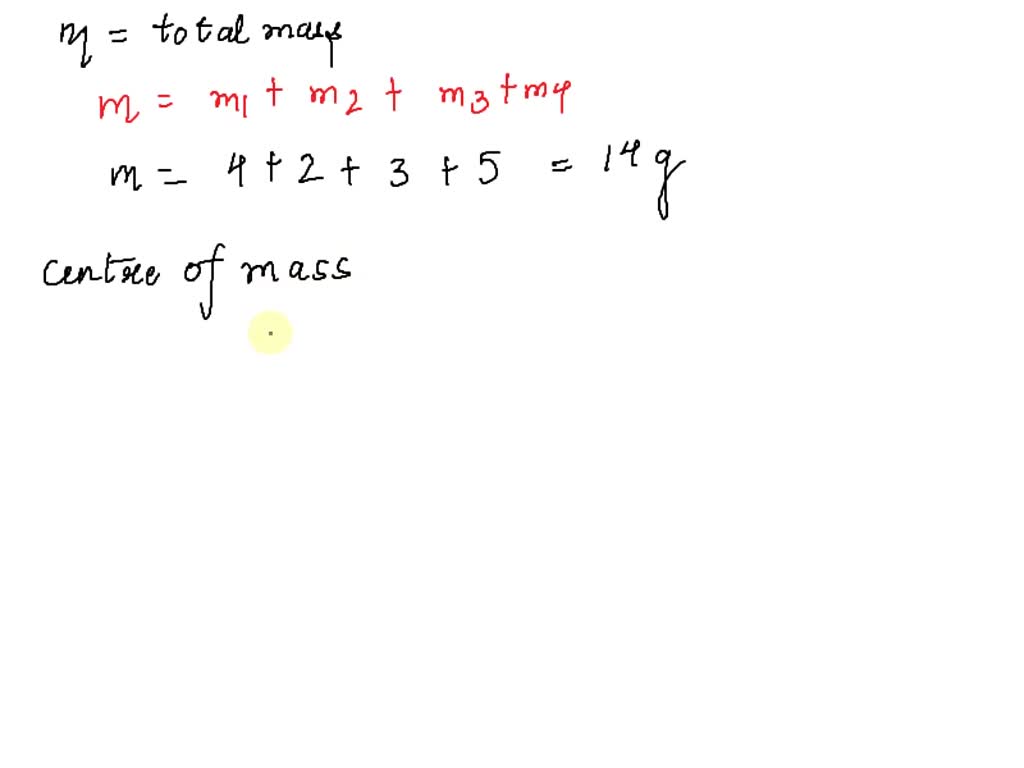 m = total mass
m = m1 + m2 + m3 + m4
m = 4 + 2 + 3 + 5 = 14 g
centre of mass